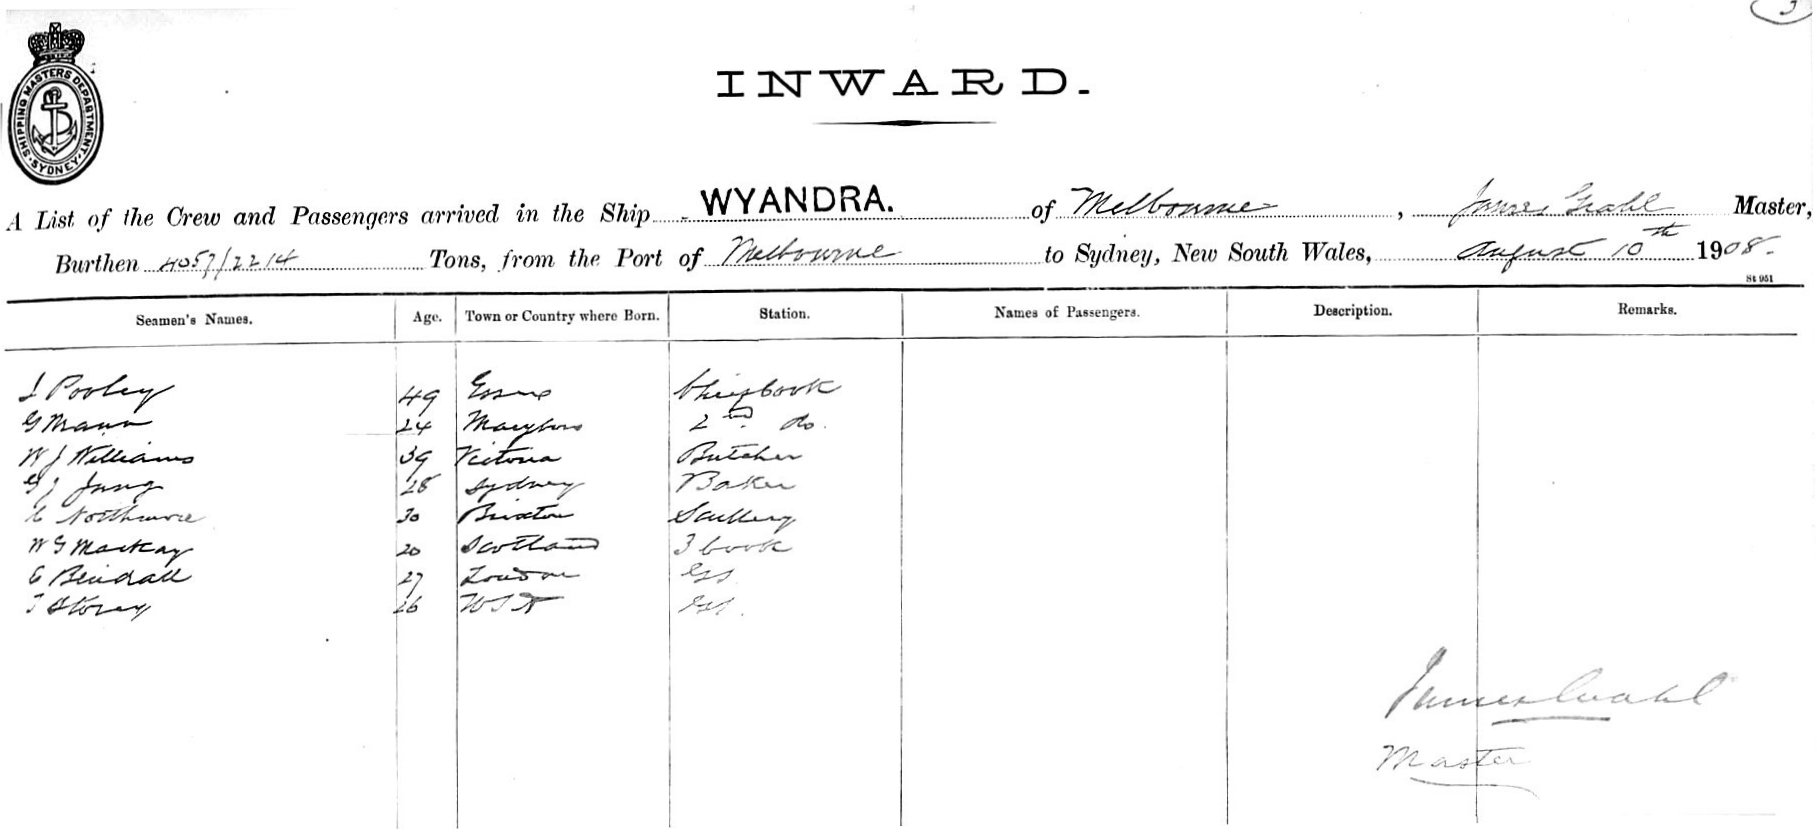 3
INWARD.
SHIPPING MASTERS DEPARTMENT. SYDNEY.
A List of the Crew and Passengers arrived in the Ship WYANDRA. of Melbourne, James Master,
Burthen 4057/2214 Tons, from the Port of Melbourne to Sydney, New South Wales, August 10th 1908.
St 951
Seamen's Names. Age. Town or Country where Born. Station. Names of Passengers. Description. Remarks.
J Pooley 49 Essex Chief Cook
G Mann 24 Maryboro 2nd do.
W J Williams 39 Victoria Butcher
G J Jung 28 Sydney Baker
Northmore 30 Brixton Scullery
W G Mackay 20 Scotland 3 Cook
C Bendall 27 London GS
T Storey 26 GS.
James
Master